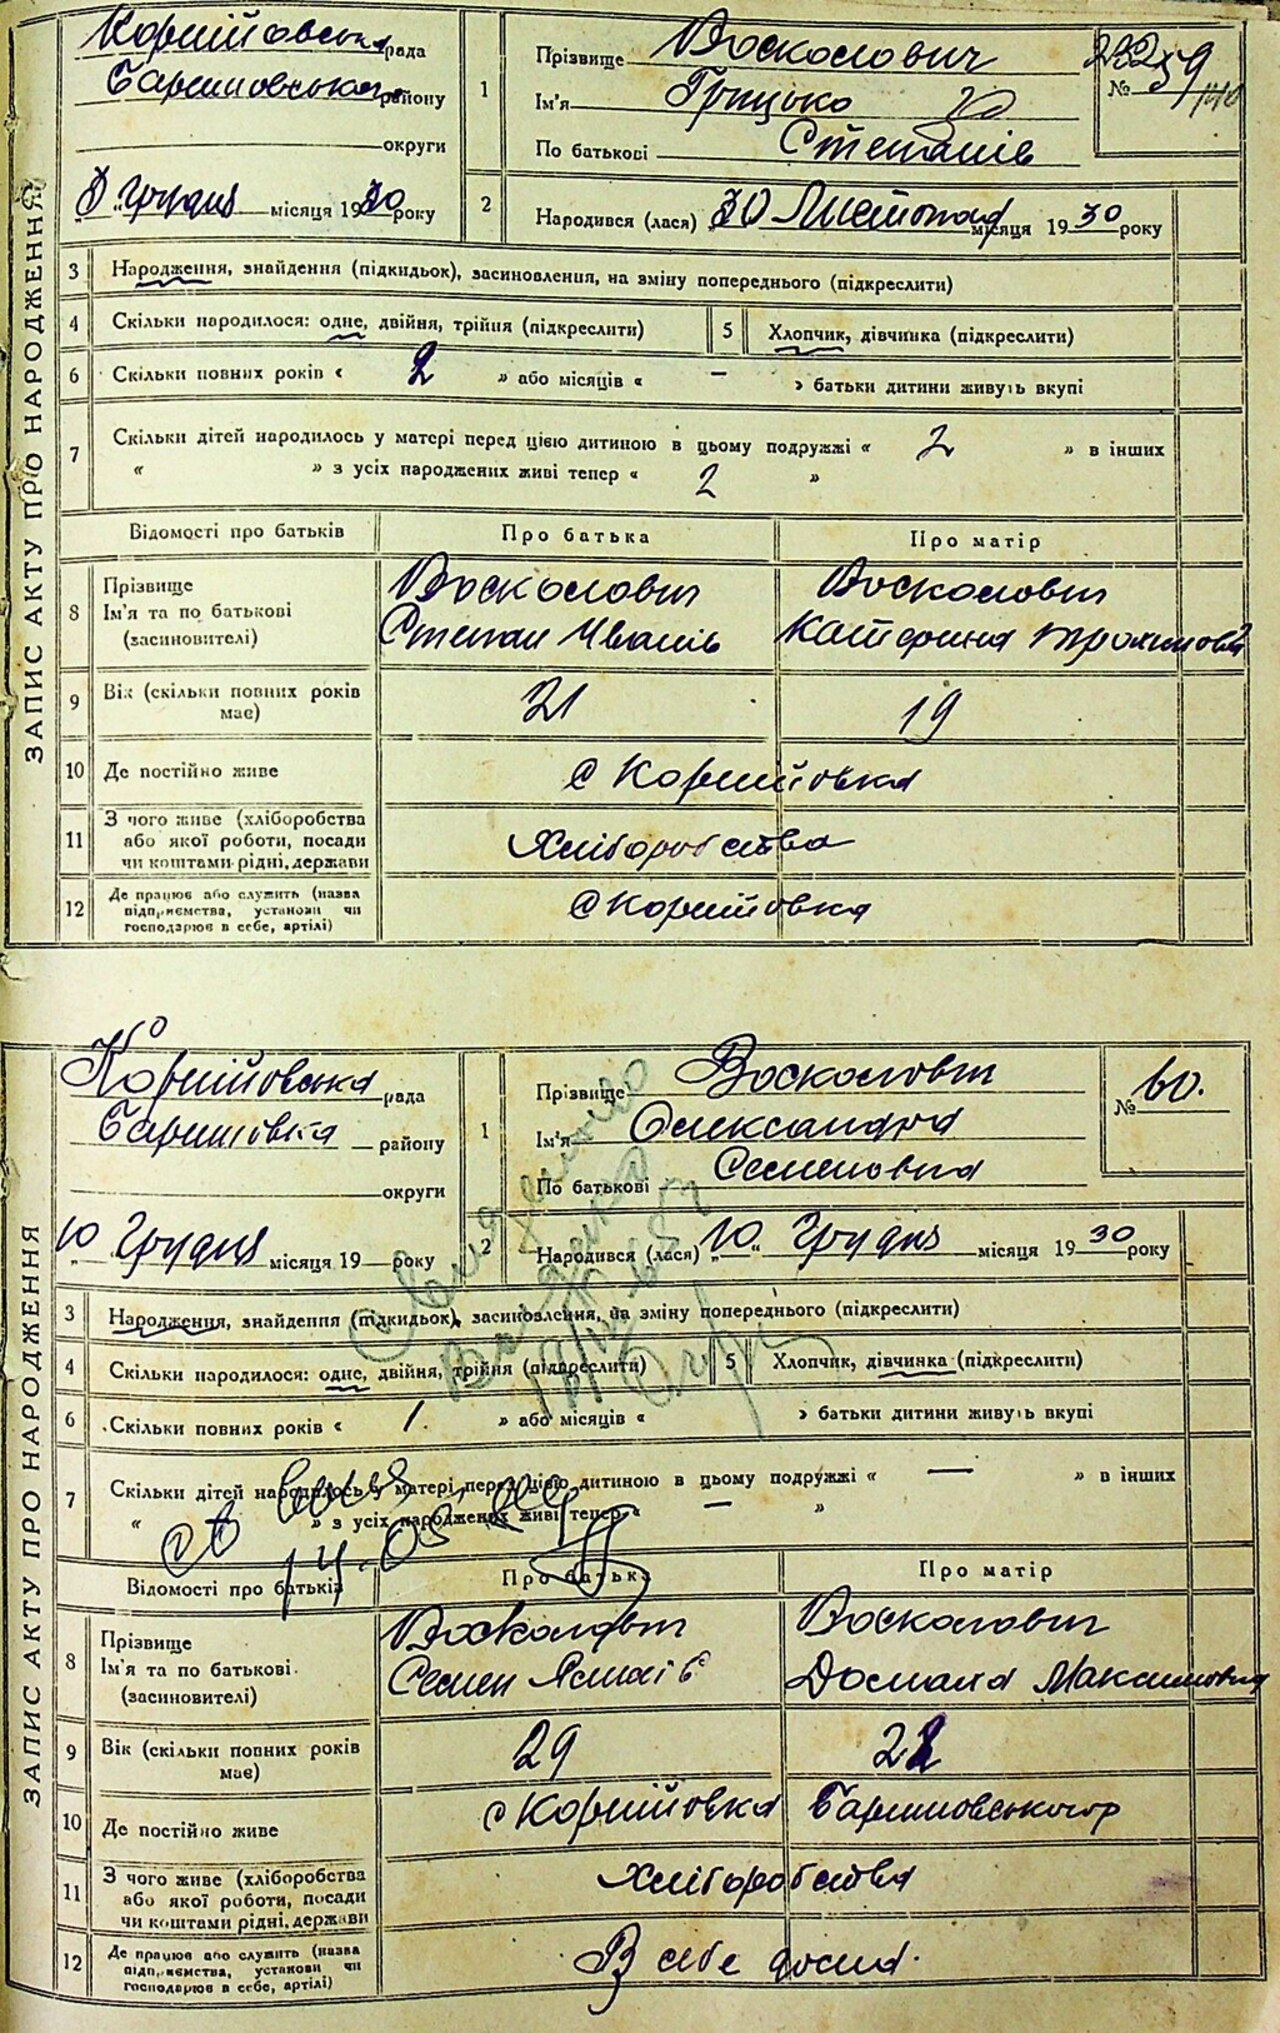 ЗАПИС АКТУ ПРО НАРОДЖЕННЯ
Коржіївська рада
Баришовського району
округи
„8“ Грудня місяця 1930 року
1
Прізвище Восколович
Ім'я Грицько
По батькові Степанів
№ 59
2
Народився (лася) 30 Листопад місяця 1930 року
3 Народження, знайдення (підкидьок), засиновлення, на зміну попереднього (підкреслити)
4 Скільки народилося: одне, двійня, трійня (підкреслити) 5 Хлопчик, дівчинка (підкреслити)
6 Скільки повних років « 2 » або місяців « – » батьки дитини живуть вкупі
7 Скільки дітей народилось у матері перед цією дитиною в цьому подружжі « 2 » в інших
« » з усіх народжених живі тепер « 2 »
Відомості про батьків Про батька Про матір
8 Прізвище Восколович Восколович
Ім'я та по батькові Степан Іванів Катерина Трохимовна
(засиновителі)
9 Вік (скільки повних років має) 21 19
10 Де постійно живе с Коржіївка
11 З чого живе (хліборобства або якої роботи, посади чи коштами рідні, держави Хліборобства
12 Де працює або служить (назва підприємства, установи чи господарює в себе, артілі) с Коржіївка
ЗАПИС АКТУ ПРО НАРОДЖЕННЯ
Коржіївська рада
Баришовка району
округи
„10 Грудня місяця 19 року
1
Прізвище Восколович
Ім'я Олександра
По батькові Семеновна
№ 60.
2
Народився (лася) „10“ Грудня місяця 1930 року
3 Народження, знайдення (підкидьок), засиновлення, на зміну попереднього (підкреслити)
4 Скільки народилося: одне, двійня, трійня (підкреслити) 5 Хлопчик, дівчинка (підкреслити)
6 Скільки повних років « 1. » або місяців « » батьки дитини живуть вкупі
7 Скільки дітей народилось у матері перед цією дитиною в цьому подружжі « — » в інших
« » з усіх народжених живі тепер « – »
Відомості про батьків Про батька Про матір
8 Прізвище Восколович Восколович
Ім'я та по батькові Семен Домаха Максимовна
(засиновителі)
9 Вік (скільки повних років має) 29 22
10 Де постійно живе с Коржіївка Баришовського р
11 З чого живе (хліборобства або якої роботи, посади чи коштами рідні, держави Хліборобства
12 Де працює або служить (назва підприємства, установи чи господарює в себе, артілі) В себе дома.